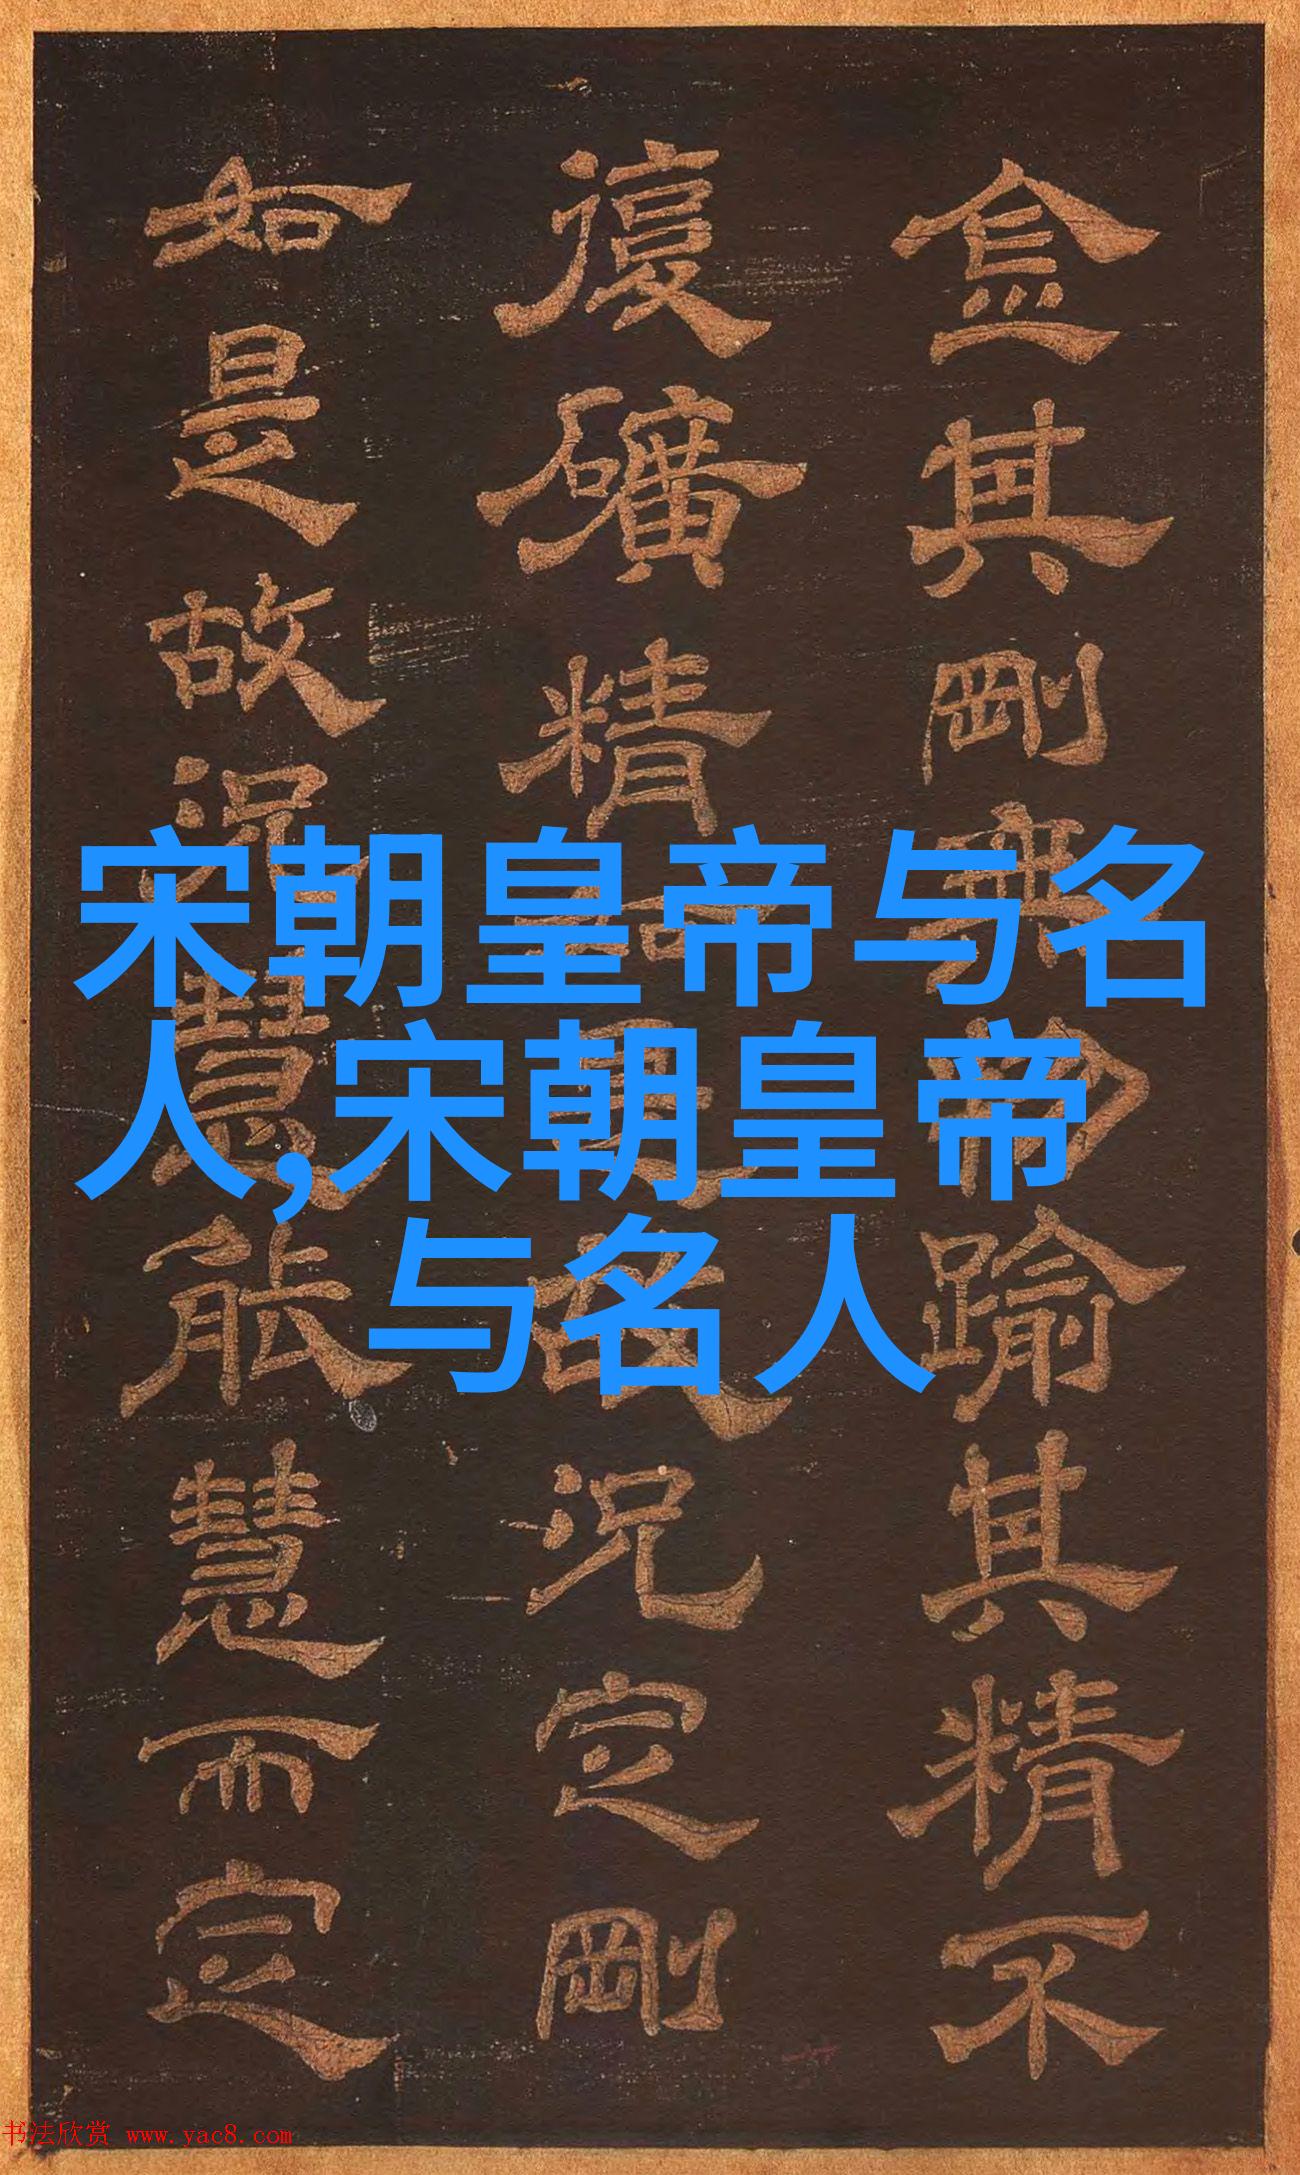 金其剛無物踰其精不
復礦精如是故況定剛
如是故況慧能慧而定
宋朝皇帝与名
人,宋朝皇帝
与名人
书法欣赏 www.yac8.com